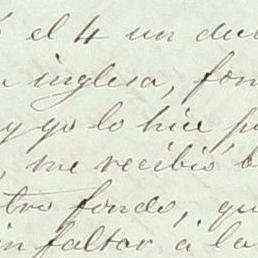 el 4 un
inglesa, fon
y yo lo hice p
, me recibió b
tro fondo, qu
in faltar á la